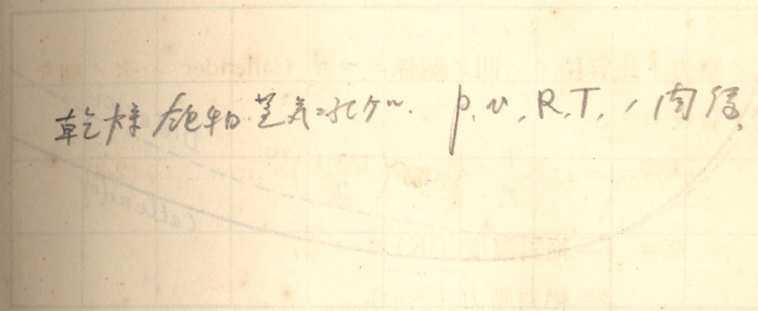 乾燥飽和蒸気ニ於ケル. p, v, R, T, ノ関係